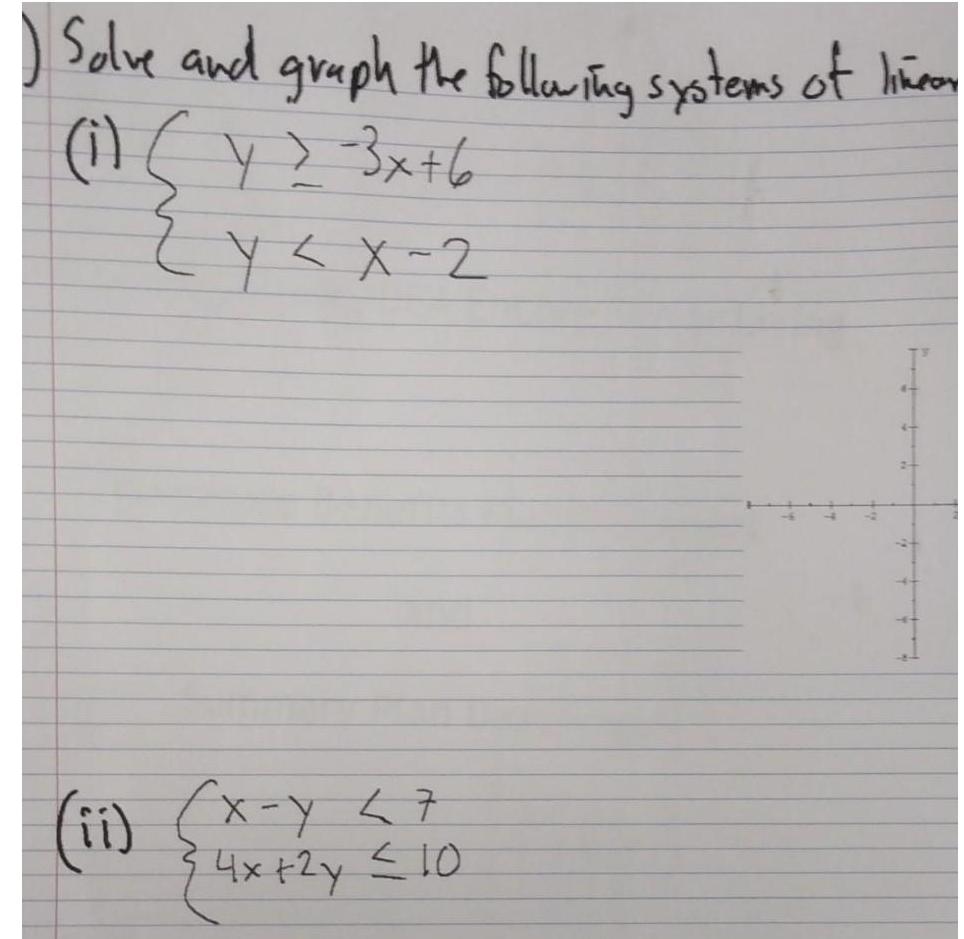 ) Solve and graph the following systems of linear
(i) { y ≥ -3x+6
y < x-2
y
6
4
2
-6 -4 -2 2
-2
-4
-6
-8
(ii) { x-y < 7
4x+2y ≤ 10